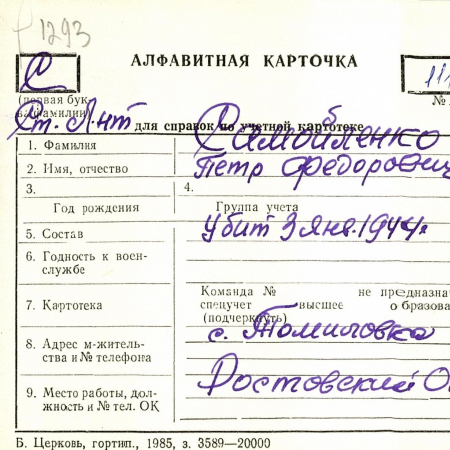 1293
АЛФАВИТНАЯ КАРТОЧКА
С
111
(первая бук-
ва фамилии)
№
Ст. Л-нт для справок по учетной картотеке
1. Фамилия Самойленко
2. Имя, отчество Петр Федорович
3. 4.
Год рождения Группа учета
5. Состав убит 3 янв. 1944г.
6. Годность к воен-
службе
Команда № не предназна
7. Картотека спецучет высшее образова
(подчеркнуть)
с. Томиловка
8. Адрес м-житель-
ства и № телефона
Ростовский
9. Место работы, дол-
жность и № тел. ОК
Б. Церковь, гортип., 1985, з. 3589—20000